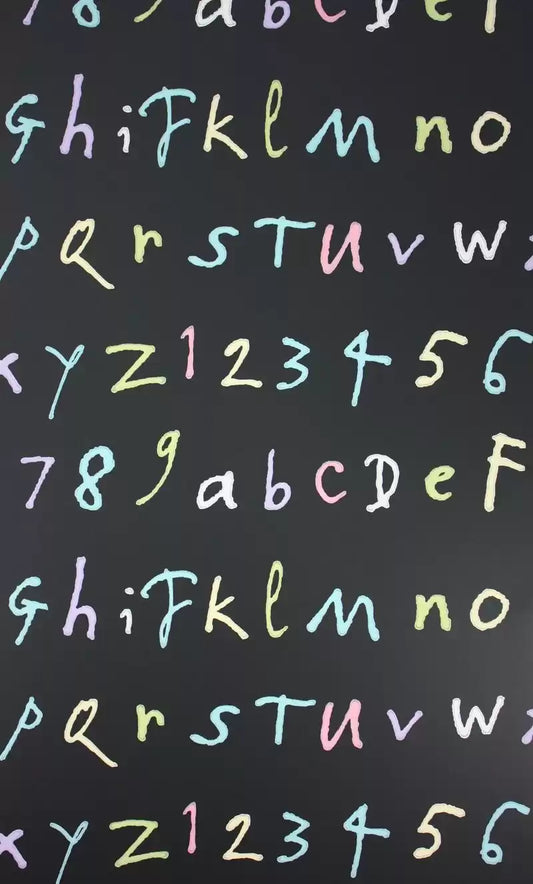 7 8 9 a b c D e F
G h i J k l M n o
p Q r s T U v W x
x y Z 1 2 3 4 5 6
7 8 9 a b c D e F
G h i J k l M n o
p Q r s T U v W x
x y Z 1 2 3 4 5 6